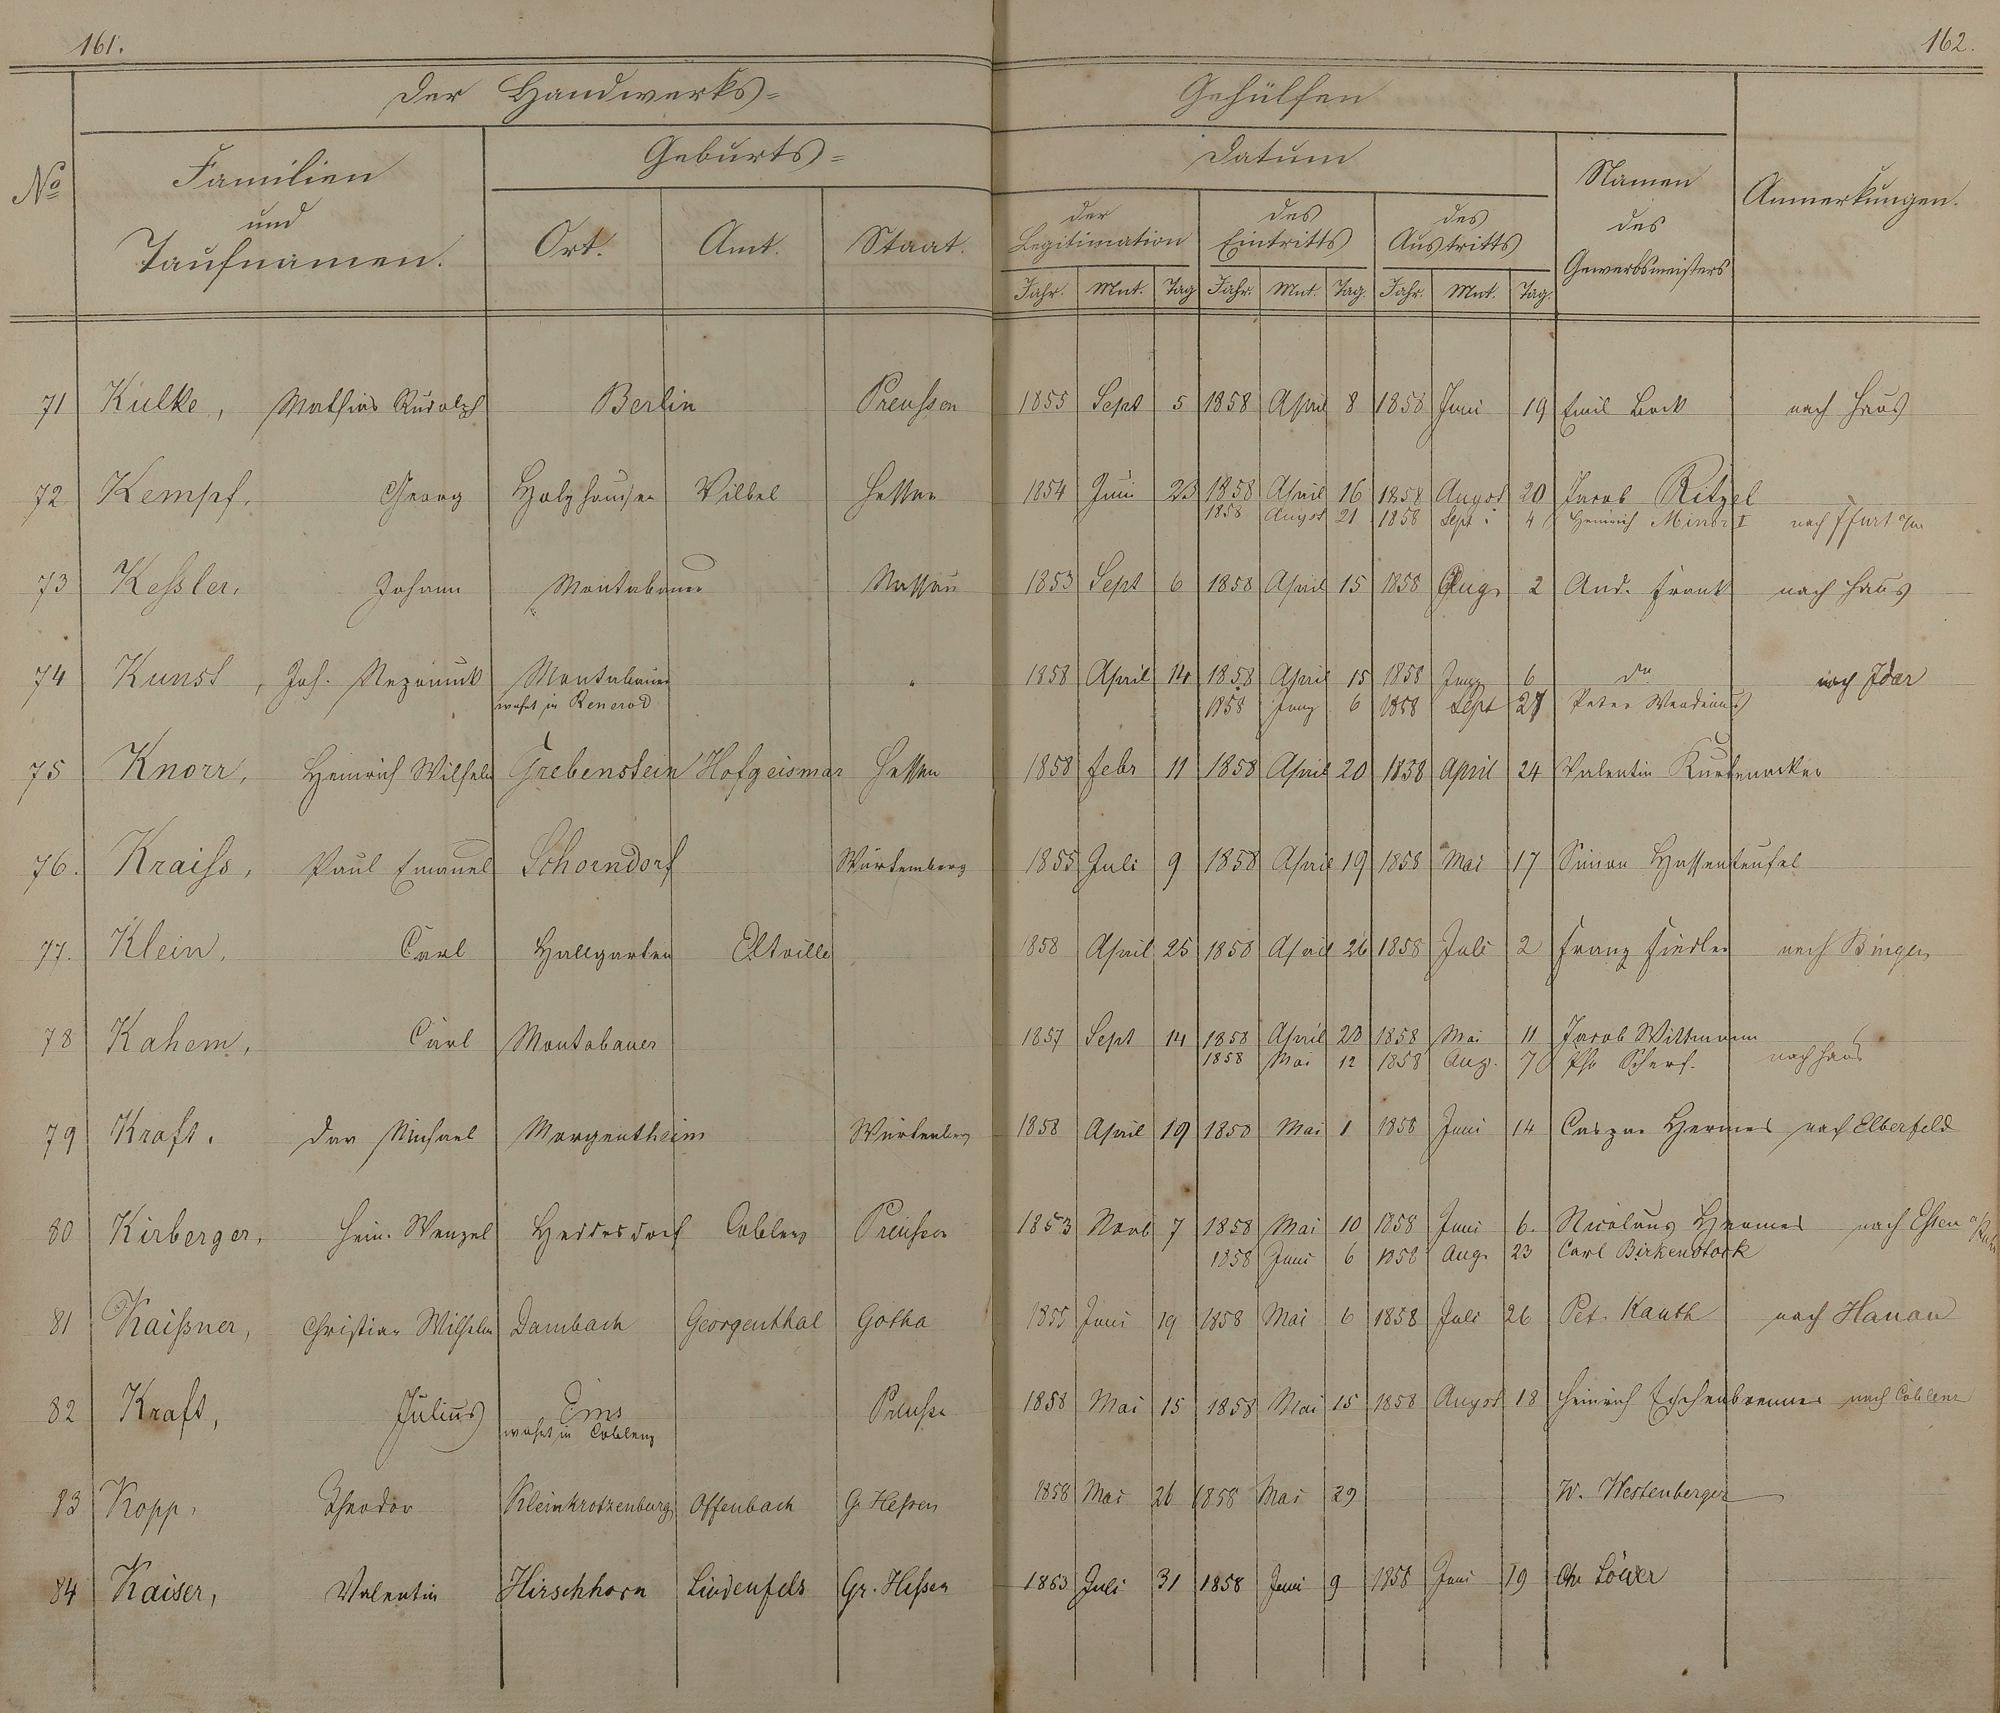 161. 162.
Der Handwerks= Gehülfen
No Familien und Taufnamen. Geburts= Datum Namen des Gewerbsmeisters Anmerkungen.
Ort. Amt. Staat. der Legitimation des Eintritts des Austritts
Jahr. Mnt. Tag Jahr. Mnt. Tag. Jahr. Mnt. Tag.
71 Kulke, Mathias Rudolph Berlin Preussen 1855 Sept 5 1858 April 8 1858 Juni 19 Emil Bock nach Haus
72 Kempf, Georg Holzhausen Vilbel Hessen 1854 Juni 23 1858 April 16 1858 August 20 Jacob Ritzel
1858 August 21 1858 Sept. 4 Heinrich Minor I nach Ffurt a/m
73 Kessler, Johann Montabauer Nassau 1853 Sept 6 1858 April 15 1858 Aug. 2 And. Frank nach Haus
74 Kunst, Joh. Nepomuk Montabauer 1858 April 14 1858 April 15 1858 Juny 6 do nach Idar
wohnt in Renerod 1858 Juny 6 1858 Sept Peter
75 Knorr, Heinrich Wilhelm Grebenstein Hofgeismar Hessen 1858 Febr 11 1858 April 20 1858 April 24 Valentin Kurtenacker
76. Kraiss, Paul Emanuel Schorndorf Würtemberg 1855 Juli 9 1858 April 19 1858 Mai 17 Simon Hassenteufel
77. Klein, Carl Hallgarten Eltville 1858 April 25 1858 April 26 1858 Juli 2 Franz Fiedler nach Bingen
78 Kahem, Carl Montabauer 1857 Sept 14 1858 April 20 1858 Mai 11 Jacob Wittmann
1858 Mai 12 1858 Aug. 7 Scherf. nach Haus
79 Kraft. Michael Mergentheim Würtenberg 1858 April 19 1858 Mai 1 1858 Juni 14 Caspar Hermes nach Elberfeld
80 Kirberger, Hein. Wenzel Heddesdorf Coblenz Preussen 1853 Novb 7 1858 Mai 10 1858 Juni 6. Nicolaus Hermes nach Essen a/Ruhr
1858 Juni 6 1858 Aug. 23 Carl Birkenstock
81 Kaissner, Christian Wilhelm Dambach Georgenthal Gotha 1855 Juni 19 1858 Mai 6 1858 Juli 26 Pet. Kauth nach Hanau
82 Kraft, Julius Ems Preusse 1858 Mai 15 1858 Mai 15 1858 August 18 Heinrich Eschenbrenner nach Coblenz
wohnt in Coblenz
83 Kopp, Theodor Kleinkrotzenburg Offenbach G. Hessen 1858 Mai 26 1858 Mai 29 W. Westenberger
84 Kaiser, Valentin Hirschhorn Lindenfels Gr. Hessen 1853 Juli 31 1858 Juni 9 1858 Juni 19 Chr Löwer